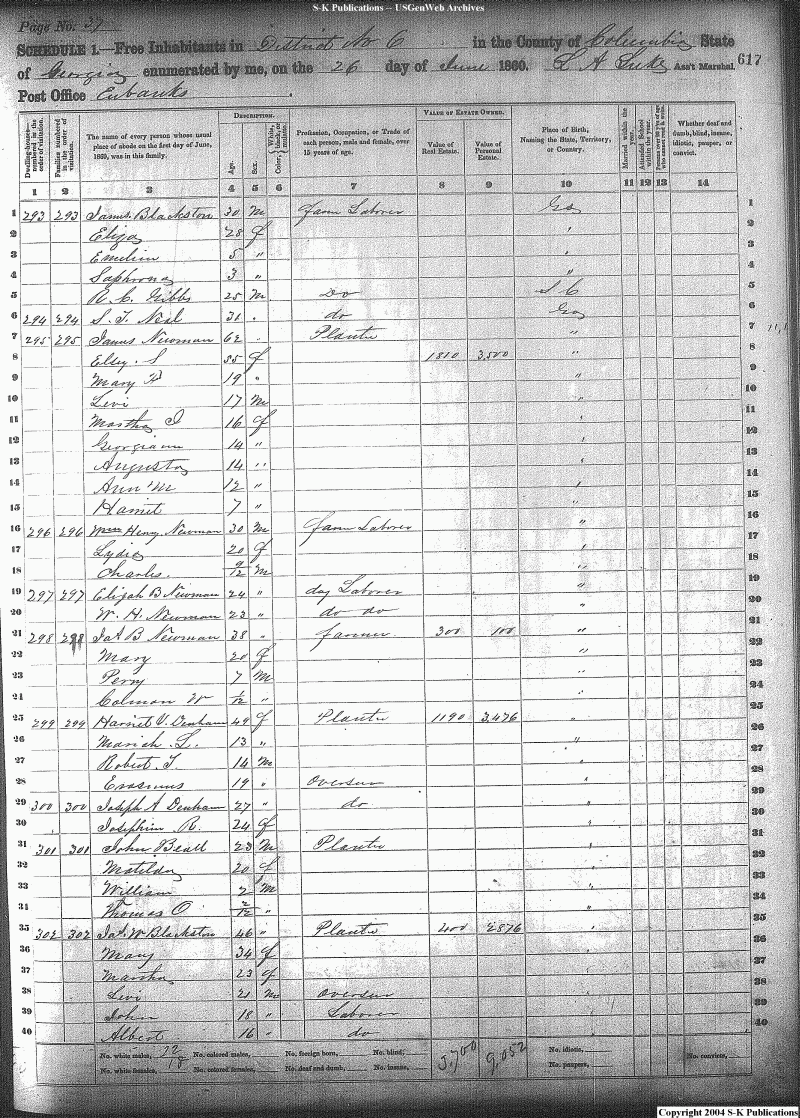 S-K Publications -- USGenWeb Archives
Page No. 37
SCHEDULE 1.—Free Inhabitants in District No 6 in the County of Columbia State
of Georgia enumerated by me, on the 26 day of June 1860. L A Luke Ass't Marshal. 617
Post Office Eubanks
DESCRIPTION. VALUE OF ESTATE OWNED.
Dwelling-houses numbered in the order of visitation. Families numbered in the order of visitation. The name of every person whose usual place of abode on the first day of June, 1860, was in this family. Age. Sex. Color, White, black, or mulatto. Profession, Occupation, or Trade of each person, male and female, over 15 years of age. Value of Real Estate. Value of Personal Estate. Place of Birth, Naming the State, Territory, or Country. Married within the year. Attended School within the year. Whether deaf and dumb, blind, insane, idiotic, pauper, or convict.
1 2 3 4 5 6 7 8 9 10 11 12 13 14
1 293 293 James Blackston 30 m farm Laborer Ga 1
2 Eliza 28 f " 2
3 Emeline 5 " " 3
4 Saphrona 3 " " 4
5 R. C. Gibbs 25 m Do S C 5
6 294 294 S. T. Neal 31 " do Ga 6
7 295 295 James Newman 62 " Plante " 7
8 Elley S 55 f 1810 3,500 " 8
9 Mary F 19 " " 9
10 Levi 17 m " 10
11 Martha J 16 f " 11
12 Georgiann 14 " " 12
13 Augusta 14 " " 13
14 Ann M 12 " " 14
15 Harriet 7 " " 15
16 296 296 Henry Newman 30 m farm Laborer " 16
17 Lydia 20 f " 17
18 Charles 9/12 m " 18
19 297 297 Elijah B Newman 24 " day Laborer " 19
20 W. H. Newman 23 " do do " 20
21 298 298 Jas B Newman 38 " farmer 300 100 " 21
22 Mary 20 f " 22
23 Perry 7 m " 23
24 Colman W 1/12 " " 24
25 299 299 Harriet V. Denham 49 f Plante 1190 3,476 " 25
26 Mariah L. 13 " " 26
27 Robert T 14 m " 27
28 Erasmus 19 " Overseer " 28
29 300 300 Joseph A Denham 27 " do " 29
30 Josephine R. 24 f " 30
31 301 301 John Beall 23 m Plante " 31
32 Matilda 20 f " 32
33 William 2 m " 33
34 Thomas O 2/12 " " 34
35 302 302 Jas. W Blackston 46 " Plante 400 2876 " 35
36 Mary 34 f 36
37 Martha 23 f 37
38 Levi 21 m Overseer 38
39 John 18 " Laborer 39
40 Albert 16 " do 40
No. white males, 22 No. colored males, No. foreign born, No. blind, 3,700 9,052 No. idiotic, No. convicts,
No. white females, 18 No. colored females, No. deaf and dumb, No. insane, No. paupers,
Copyright 2004 S-K Publications